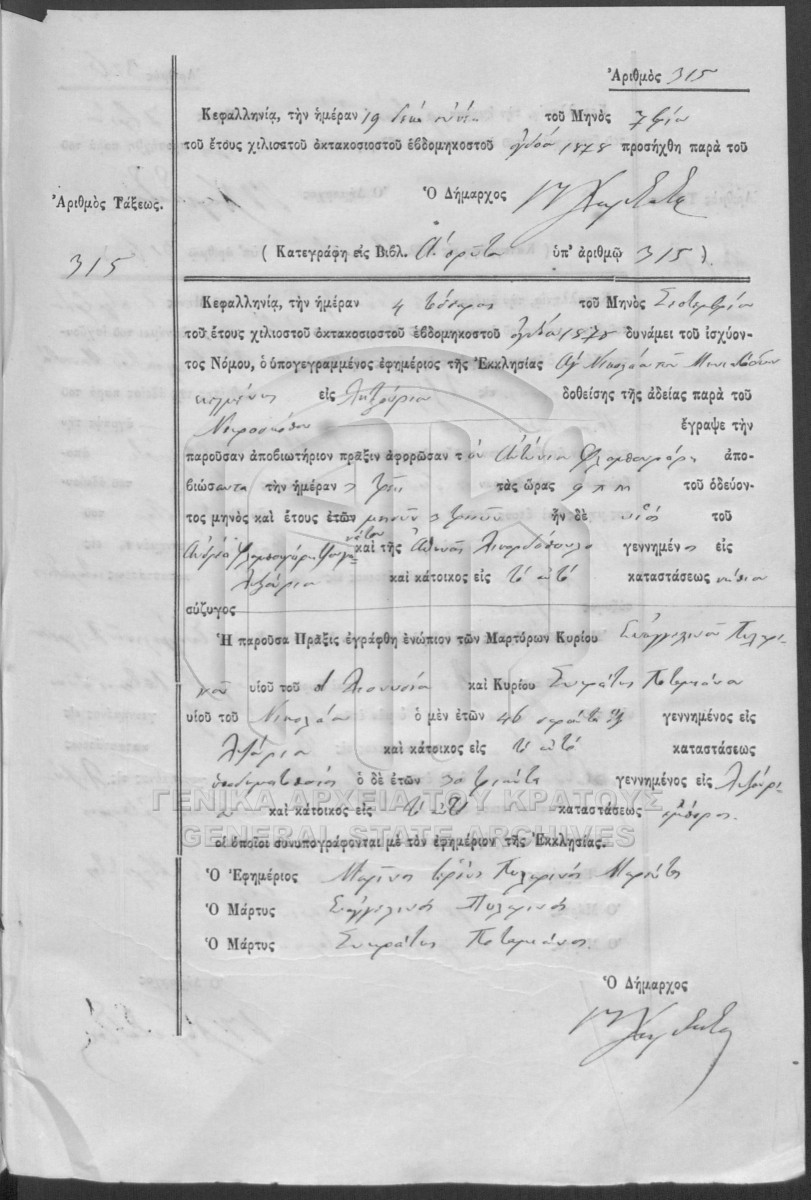 Ἀριθμὸς 315
Κεφαλληνίᾳ, τὴν ἡμέραν 19 δέκα ἐννέα τοῦ Μηνὸς 7βρίου
τοῦ ἔτους χιλιοστοῦ ὀκτακοσιοστοῦ ἑβδομηκοστοῦ ὀγδόου 1878 προσήχθη παρὰ τοῦ
Ὁ Δήμαρχος
Ἀριθμὸς Τάξεως.
315
( Κατεγράφη εἰς Βιβλ. ὑπ' ἀριθμῷ 315 ).
Κεφαλληνίᾳ, τὴν ἡμέραν 4 τέσσαρες τοῦ Μηνὸς Σεπτεμβρίου
τοῦ ἔτους χιλιοστοῦ ὀκτακοσιοστοῦ ἑβδομηκοστοῦ ὀγδόου 1878 δυνάμει τοῦ ἰσχύον-
τος Νόμου, ὁ ὑπογεγραμμένος ἐφημέριος τῆς Ἐκκλησίας Ἁγ Νικολάου τῶν
κειμένης εἰς Ληξούριον δοθείσης τῆς ἀδείας παρὰ τοῦ
ἔγραψε τὴν
παροῦσαν ἀποβιωτήριον πρᾶξιν ἀφορῶσαν τὸν Ἀντώνιον ἀπο-
βιώσαντα τὴν ἡμέραν 3 τρεῖς τὰς ὥρας 9 π μ τοῦ ὁδεύον-
τος μηνὸς καὶ ἔτους ἐτῶν μηνῶν 3 τριῶν ἦν δὲ υἱὸς τοῦ
Ἀνδρέα καὶ τῆς γεννημένος εἰς
Ληξούριον καὶ κάτοικος εἰς τὸ αὐτό καταστάσεως νήπιον
σύζυγος
Ἡ παροῦσα Πρᾶξις ἐγράφθη ἐνώπιον τῶν Μαρτύρων Κυρίου Εὐαγγελινοῦ Πυλαρι-
νοῦ υἱοῦ τοῦ Διονυσίου καὶ Κυρίου Σωκράτης Ποταμιάνου
υἱοῦ τοῦ Νικολάου ὁ μὲν ἐτῶν 46 σαράντα ἕξ γεννημένος εἰς
Ληξούριον καὶ κάτοικος εἰς τὸ αὐτό καταστάσεως
ὑποδηματοποιός ὁ δὲ ἐτῶν 30 τριάντα γεννημένος εἰς Ληξούρι-
ον καὶ κάτοικος εἰς τὸ αὐτό καταστάσεως ἔμπορος.
οἱ ὁποῖοι συνυπογράφονται μὲ τὸν ἐφημέριον τῆς Ἐκκλησίας.
Ὁ Ἐφημέριος Μαρῖνος ἱερεὺς Πυλαρινός
Ὁ Μάρτυς Εὐαγγελινός Πυλαρινός
Ὁ Μάρτυς Σωκράτης Ποταμιάνος
Ὁ Δήμαρχος
ΓΕΝΙΚΑ ΑΡΧΕΙΑ ΤΟΥ ΚΡΑΤΟΥΣ
GENERAL STATE ARCHIVES